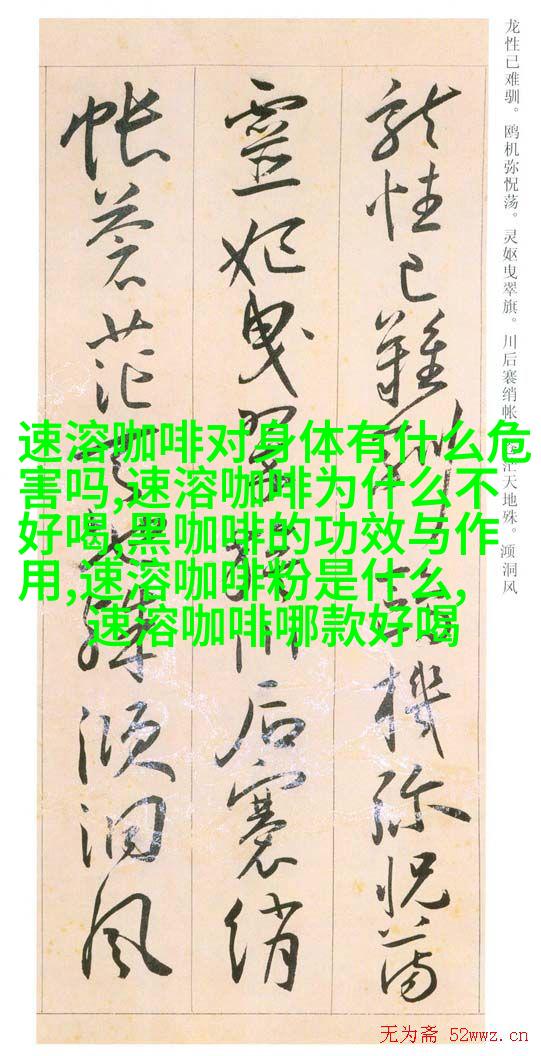 龙性已难驯。鸥机弥怳荡。灵妪曳翠旗。川后褰绡帐 茫天地殊。澒洞风
龍性已難馴 機弥怳蕩
靈妃曳翠 后褰綃
帐蒼茫 殊澒洞風
速溶咖啡对身体有什么危
害吗,速溶咖啡为什么不
好喝,黑咖啡的功效与作
用,速溶咖啡粉是什么,
速溶咖啡哪款好喝
无为斋 52wwz.cn